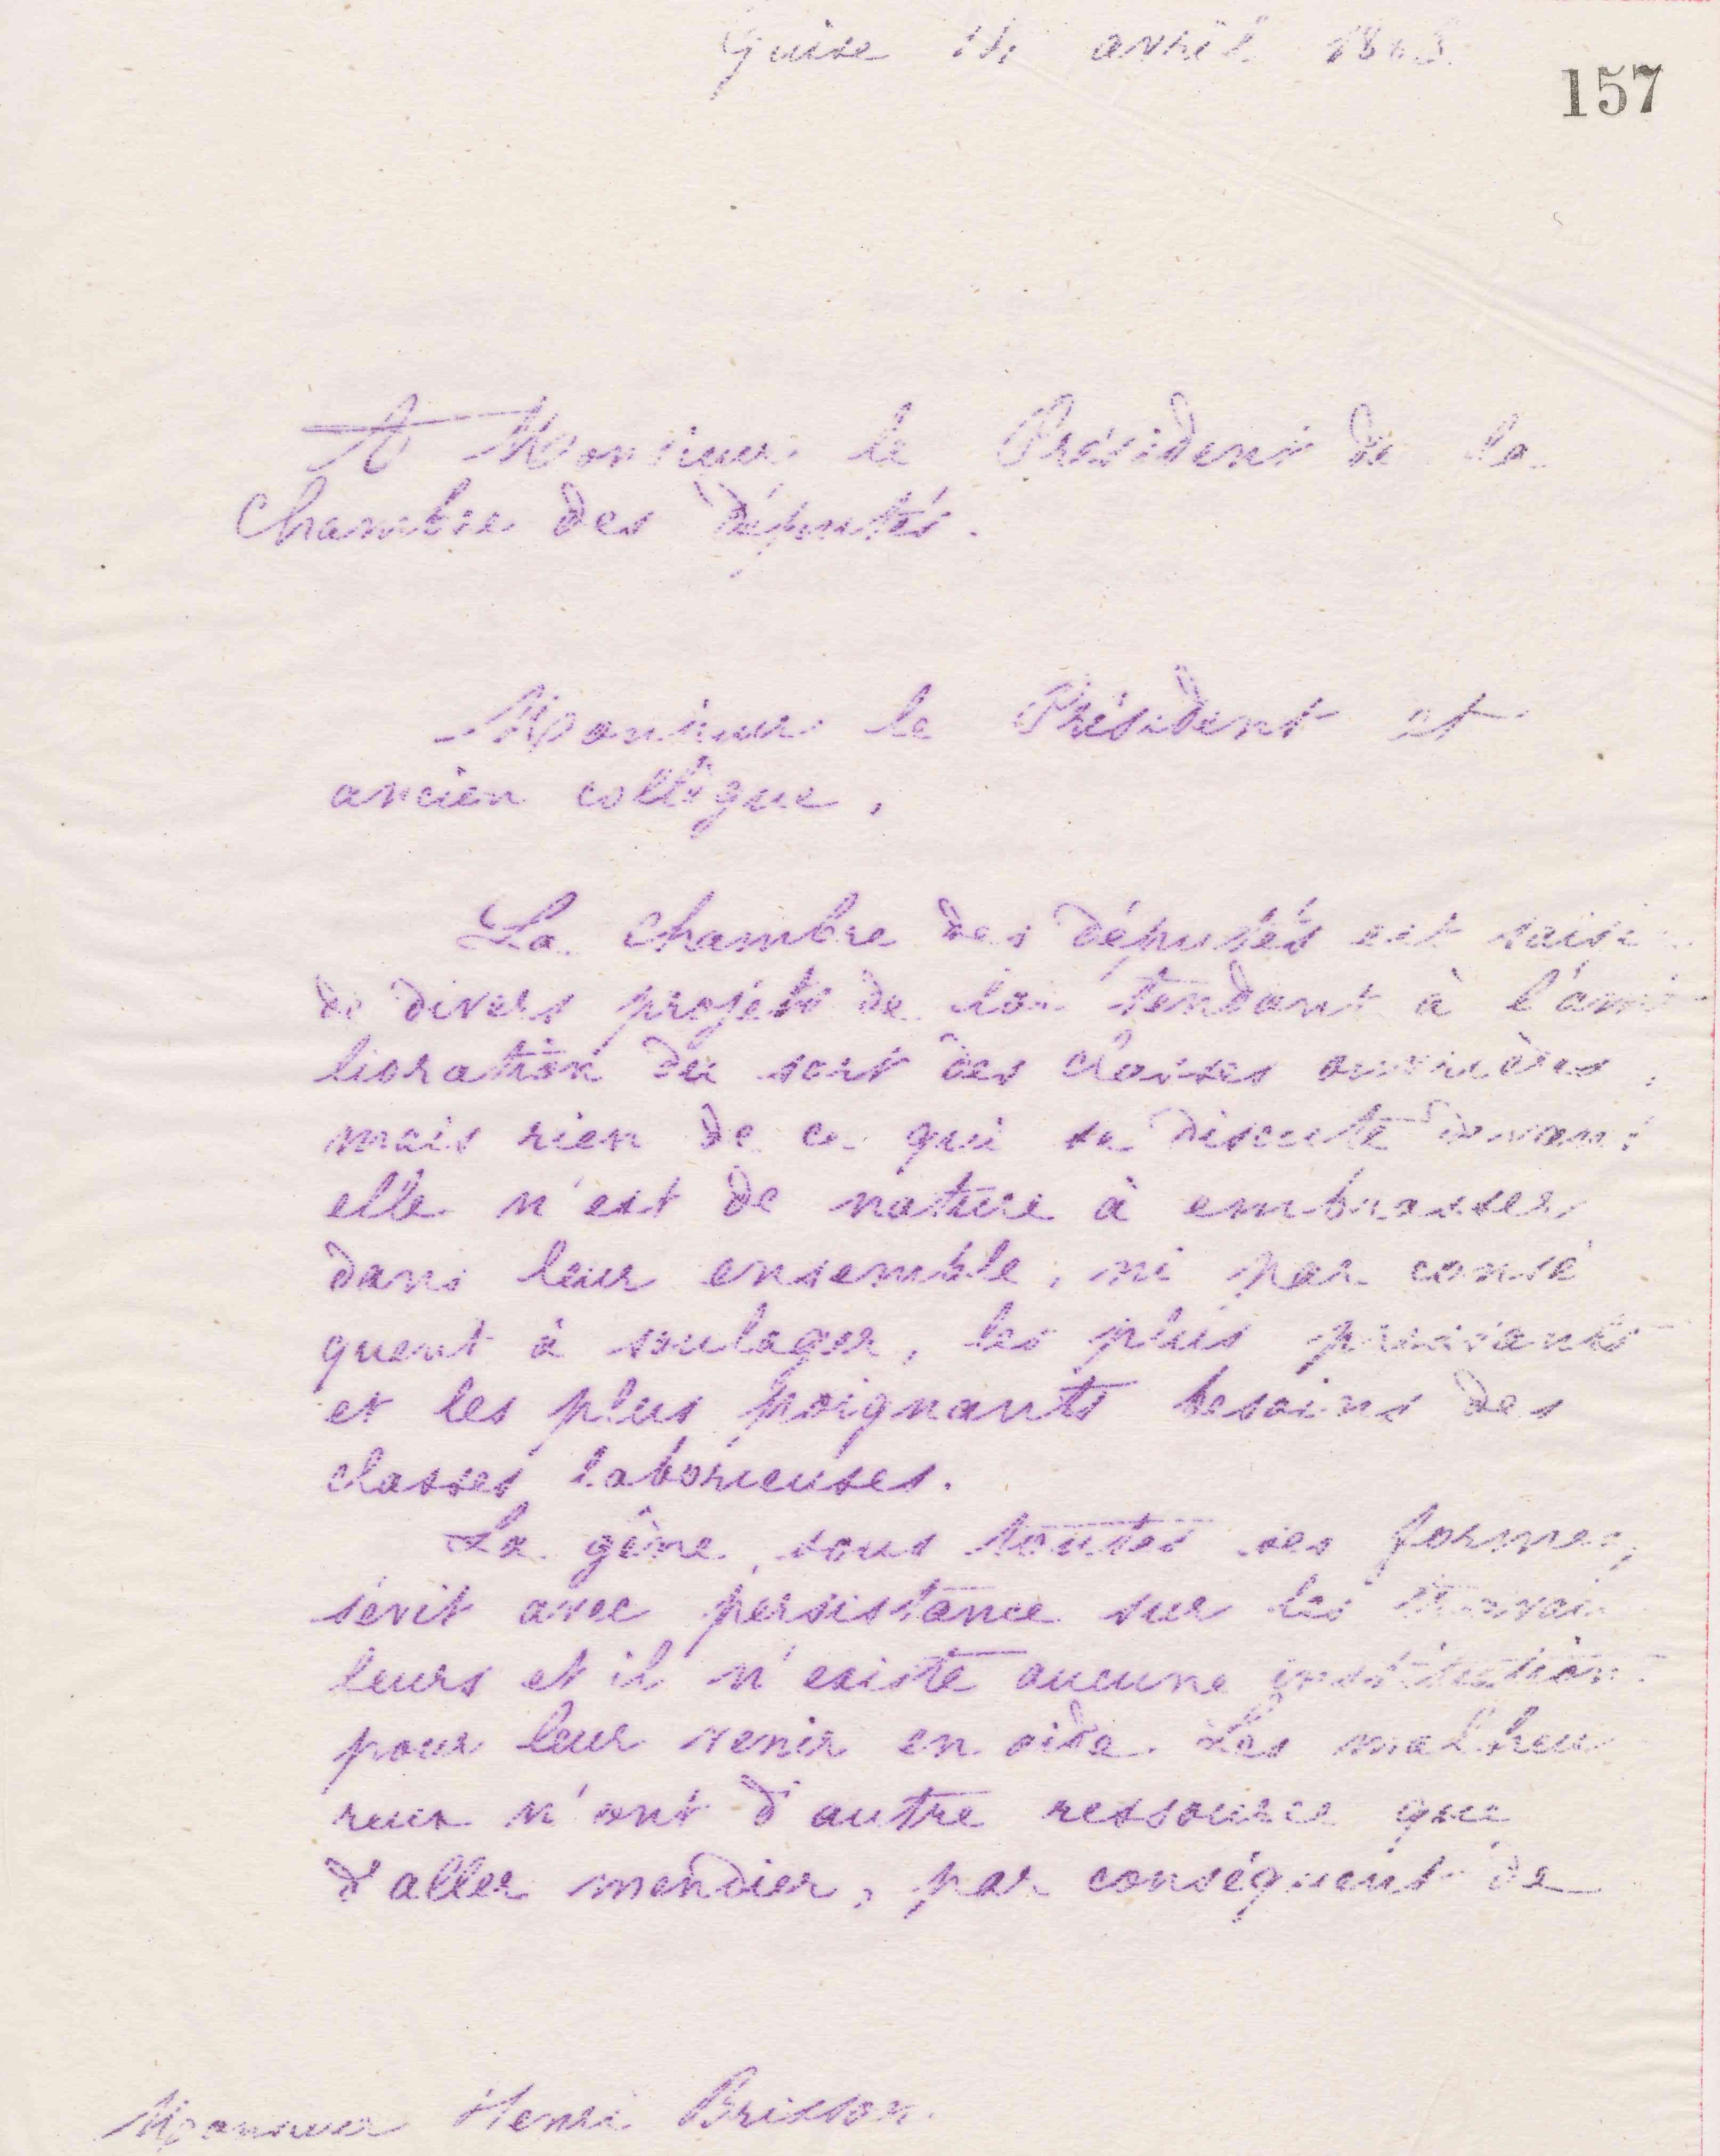 Guise avril
157
A Monsieur le Président de la
Chambre des députés.
Monsieur le Président et
ancien collègue,
La Chambre des députés est saisie
de divers projets de loi tendant à l'amé
lioration du sort des classes ouvrières,
mais rien de ce qui se discute devant
elle n'est de nature à embrasser
dans leur ensemble, ni par consé
quent à soulager, les plus pressants
et les plus poignants besoins des
classes laborieuses.
La gêne, sous toutes ses formes,
sévit avec persistance sur les travail
leurs et il n'existe aucune institution
pour leur venir en aide. Les malheu
reux n'ont d'autre ressource que
d'aller mendier, par conséquent de
Monsieur Henri Brisson.